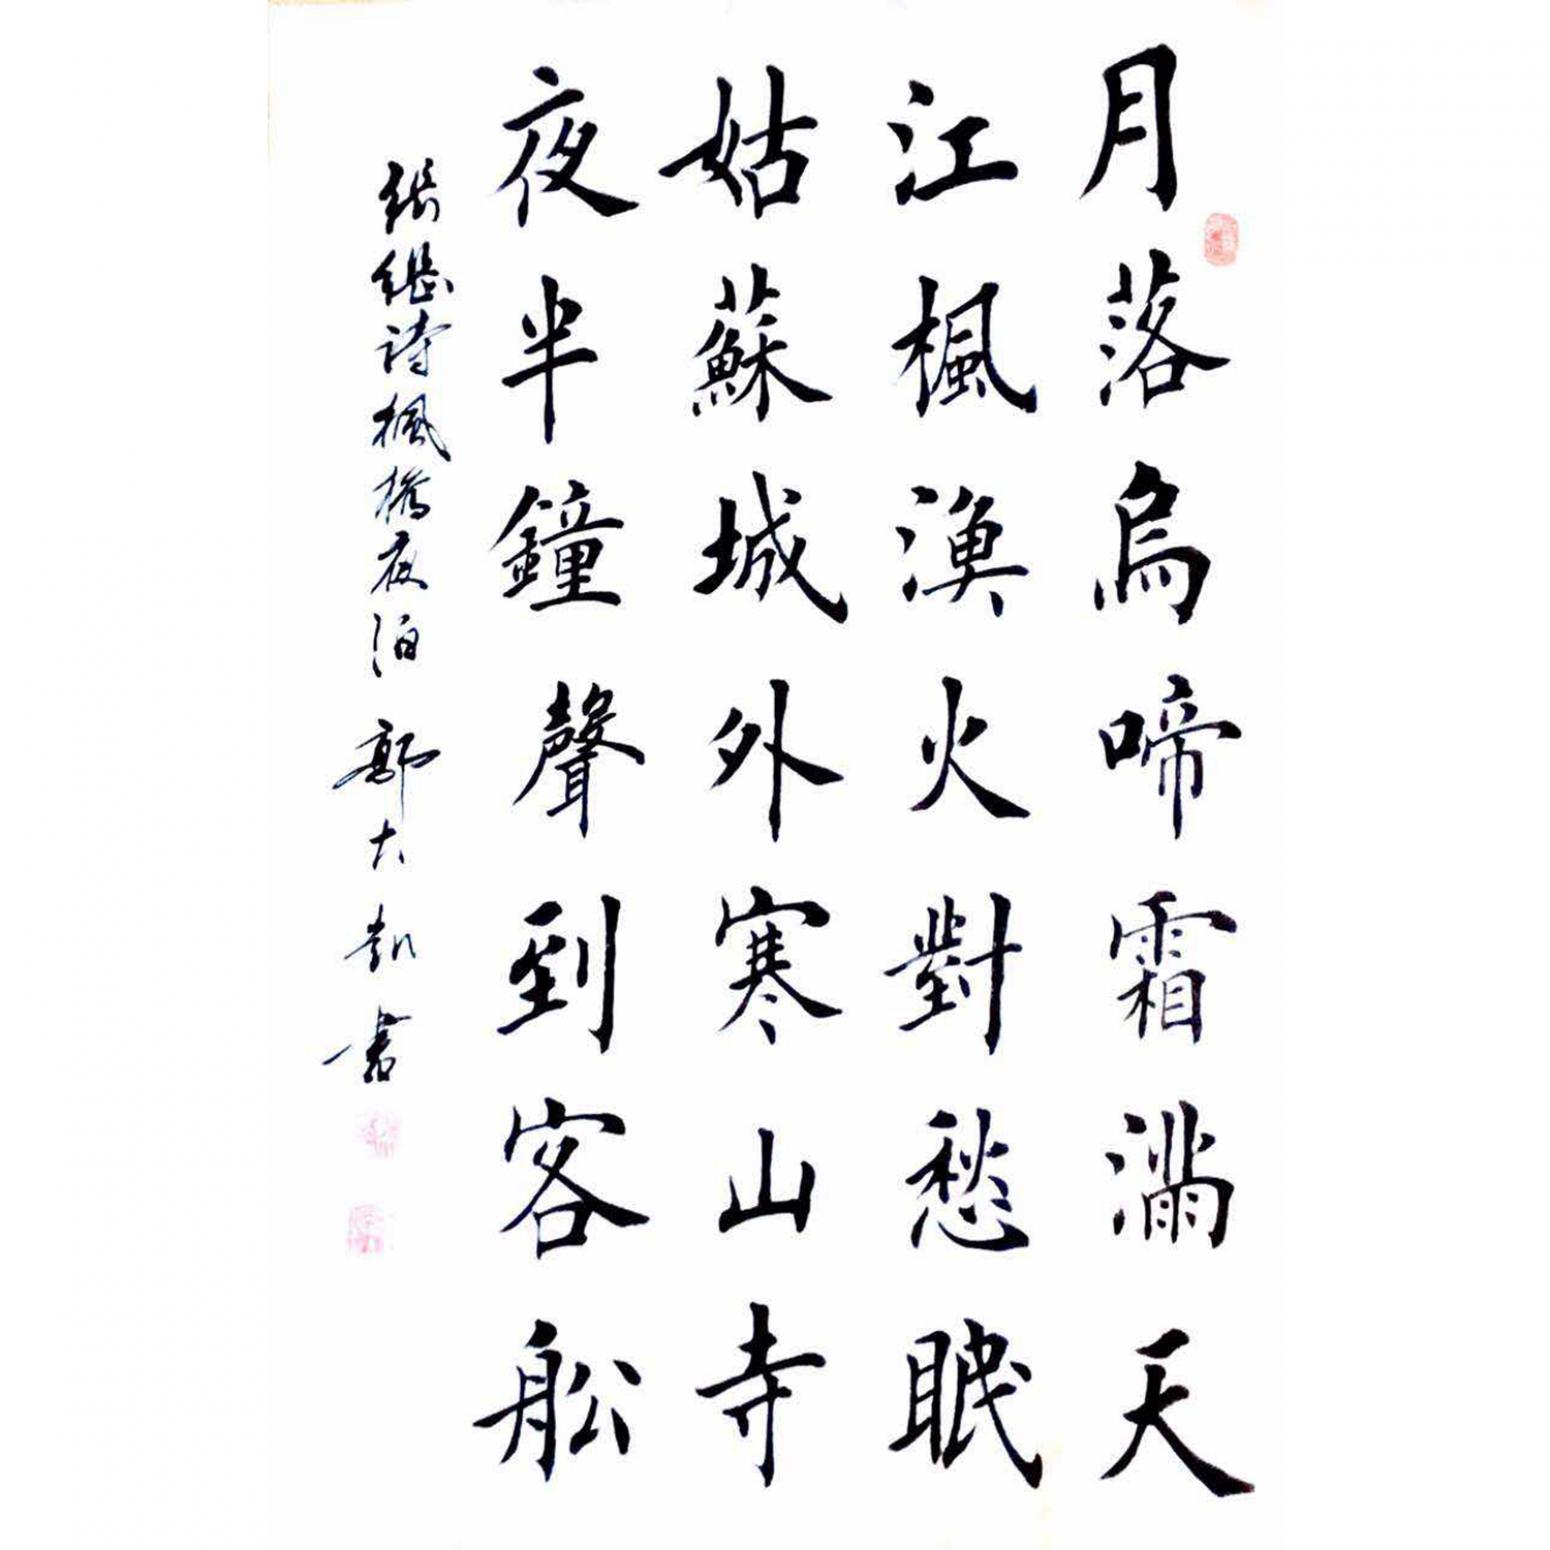 月落烏啼霜滿天
江楓漁火對愁眠
姑蘇城外寒山寺
夜半鐘聲到客船
張繼詩楓橋夜泊 郭大凱書